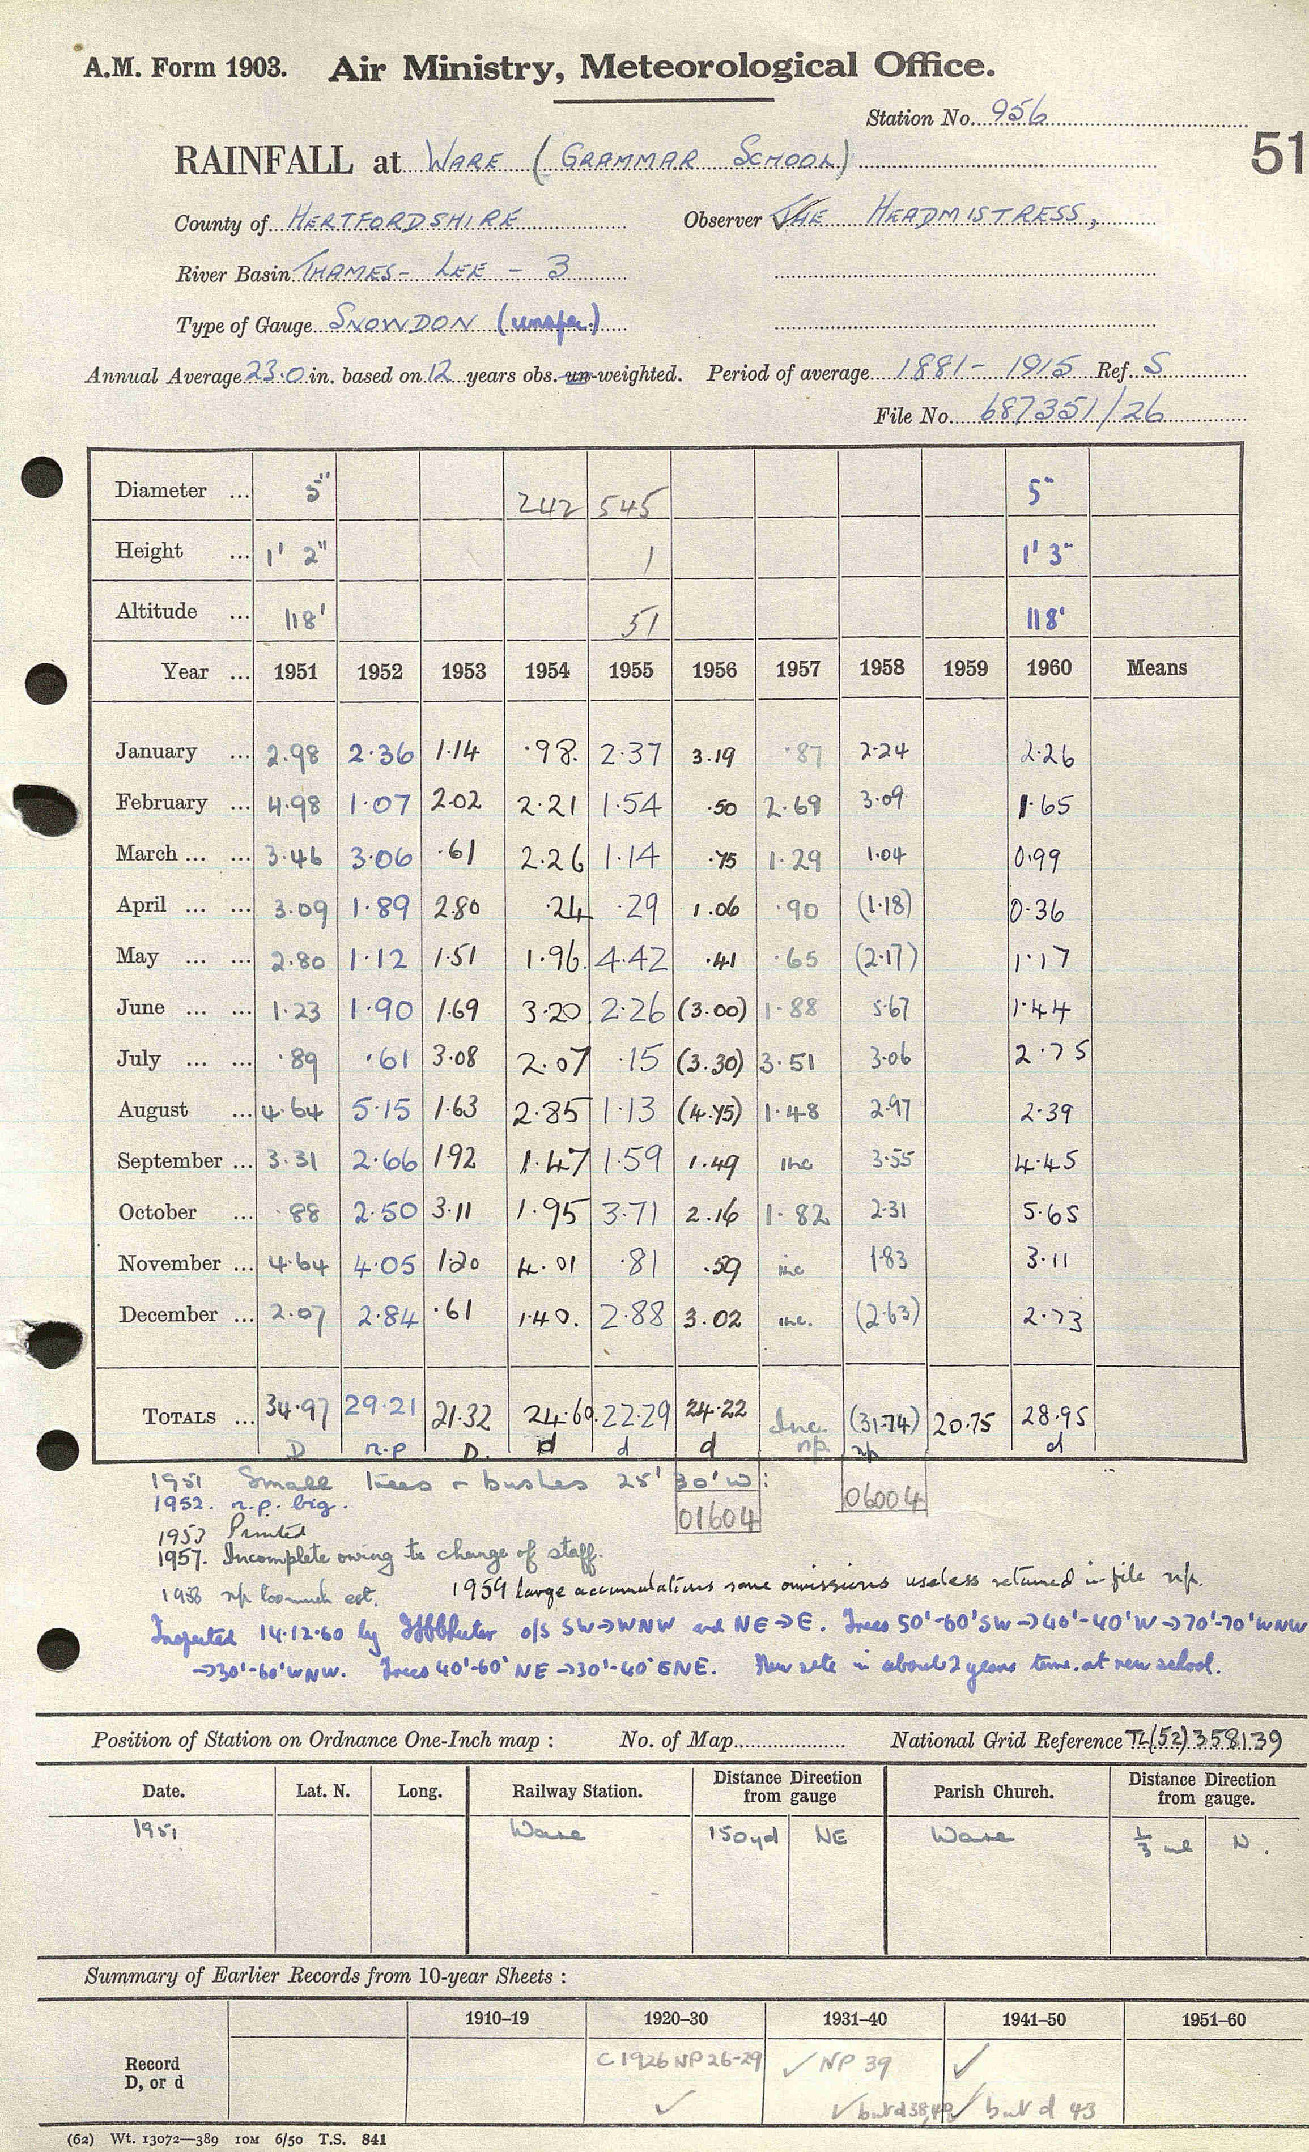 A.M. Form 1903. Air Ministry, Meteorological Office.
Station No. 956
51
RAINFALL at WARE (GRAMMAR SCHOOL)
County of HERTFORDSHIRE Observer THE HEADMISTRESS,
River Basin THAMES - LEE - 3
Type of Gauge SNOWDON (unspec.)
Annual Average 23.0 in. based on 12 years obs. un-weighted. Period of average 1881 - 1915 Ref. S
File No. 687351/26
Diameter ... 5" 242 545 5"
Height ... 1' 2" 1 1' 3"
Altitude ... 118' 51 118'
Year ... 1951 1952 1953 1954 1955 1956 1957 1958 1959 1960 Means
January ... 2.98 2.36 1.14 .98 2.37 3.19 .87 2.24 2.26
February ... 4.98 1.07 2.02 2.21 1.54 .50 2.69 3.09 1.65
March ... ... 3.46 3.06 .61 2.26 1.14 .75 1.29 1.04 0.99
April ... ... 3.09 1.89 2.80 .24 .29 1.06 .90 (1.18) 0.36
May ... ... 2.80 1.12 1.51 1.96 4.42 .41 .65 (2.17) 1.17
June ... ... 1.23 1.90 1.69 3.20 2.26 (3.00) 1.88 5.67 1.44
July ... ... .89 .61 3.08 2.07 .15 (3.30) 3.51 3.06 2.75
August ... 4.64 5.15 1.63 2.85 1.13 (4.75) 1.48 2.97 2.39
September ... 3.31 2.66 1.92 1.47 1.59 1.49 inc 3.55 4.45
October ... .88 2.50 3.11 1.95 3.71 2.16 1.82 2.31 5.65
November ... 4.64 4.05 1.20 4.01 .81 .59 inc 1.83 3.11
December ... 2.07 2.84 .61 1.40. 2.88 3.02 inc. (2.63) 2.73
TOTALS ... 34.97 29.21 21.32 24.60 22.29 24.22 Inc. (31.74) 20.75 28.95
D n.p D. d d d np. np d
1951 Small trees & bushes 25' 30' W:
01604 06004
1952. n.p. big.
1953 Printed
1957. Incomplete owing to change of staff.
1958 np too much est. 1959 large accumulations some omissions useless returned in file np.
Inspected 14.12.60 by o/s SW→WNW and NE→E. Trees 50'-60' SW→40'-40' W→70'-70' WNW
→30'-60' WNW. Trees 40'-60' NE→30'-40' ENE. New site in about 2 years time. at new school.
Position of Station on Ordnance One-Inch map : No. of Map National Grid Reference TL(52)358139
Date. Lat. N. Long. Railway Station. Distance Direction from gauge Parish Church. Distance Direction from gauge.
1951 Ware 150yd NE Ware 1/3 ml N.
Summary of Earlier Records from 10-year Sheets :
1910–19 1920–30 1931–40 1941–50 1951–60
Record D, or d
C1926 NP 26-29 ✓ NP 39 ✓
✓ ✓ but d 38, ✓ but d 43
(62) Wt. 13072—389 10M 6/50 T.S. 841